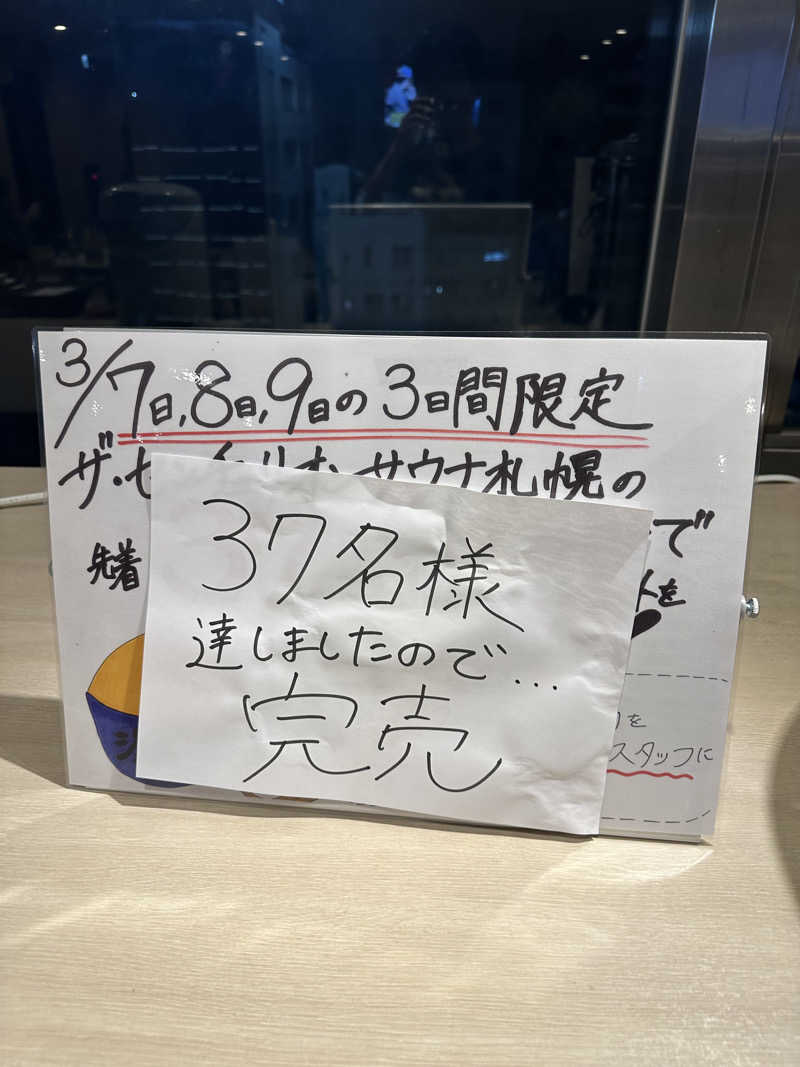 3/7日,8日,9日の3日間限定
サウナ札幌の
で
先着
を
37名様
達しましたので…
完売
を
スタッフに